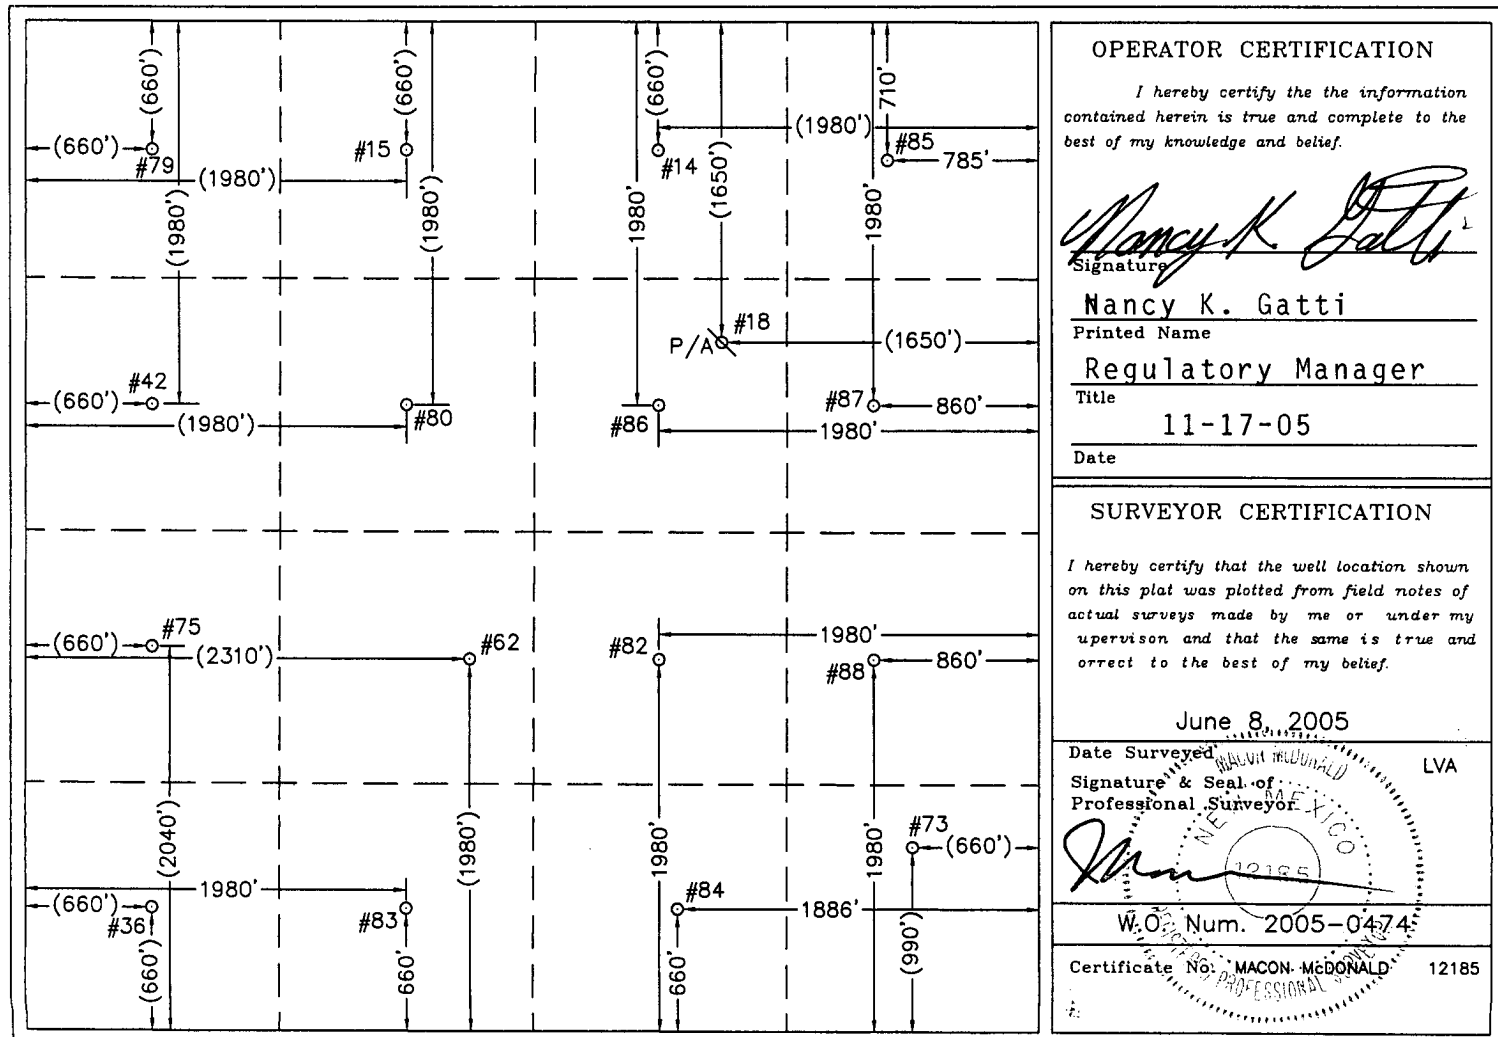 (660')
(660')
(660')
710'
(660')
#79
#15
#14
(1980')
#85
785'
(1980')
(1980')
(1980')
1980'
(1650')
1980'
#18
P/A
(1650')
(660')
#42
#80
#86
#87
860'
(1980')
1980'
(660')
#75
(2310')
#62
#82
1980'
#88
860'
(2040')
(1980')
1980'
1980'
#73
(660')
1980'
(660')
#36
#83
#84
1886'
(660')
660'
660'
(990')
OPERATOR CERTIFICATION
I hereby certify the the information
contained herein is true and complete to the
best of my knowledge and belief.
Nancy K. Gatti
Signature
Nancy K. Gatti
Printed Name
Regulatory Manager
Title
11-17-05
Date
SURVEYOR CERTIFICATION
I hereby certify that the well location shown
on this plat was plotted from field notes of
actual surveys made by me or under my
upervison and that the same is true and
orrect to the best of my belief.
June 8, 2005
Date Surveyed
LVA
Signature & Seal of
Professional Surveyor
MACON McDONALD
NEW MEXICO
12185
PROFESSIONAL SURVEYOR
W.O. Num. 2005-0474
Certificate No. MACON McDONALD 12185